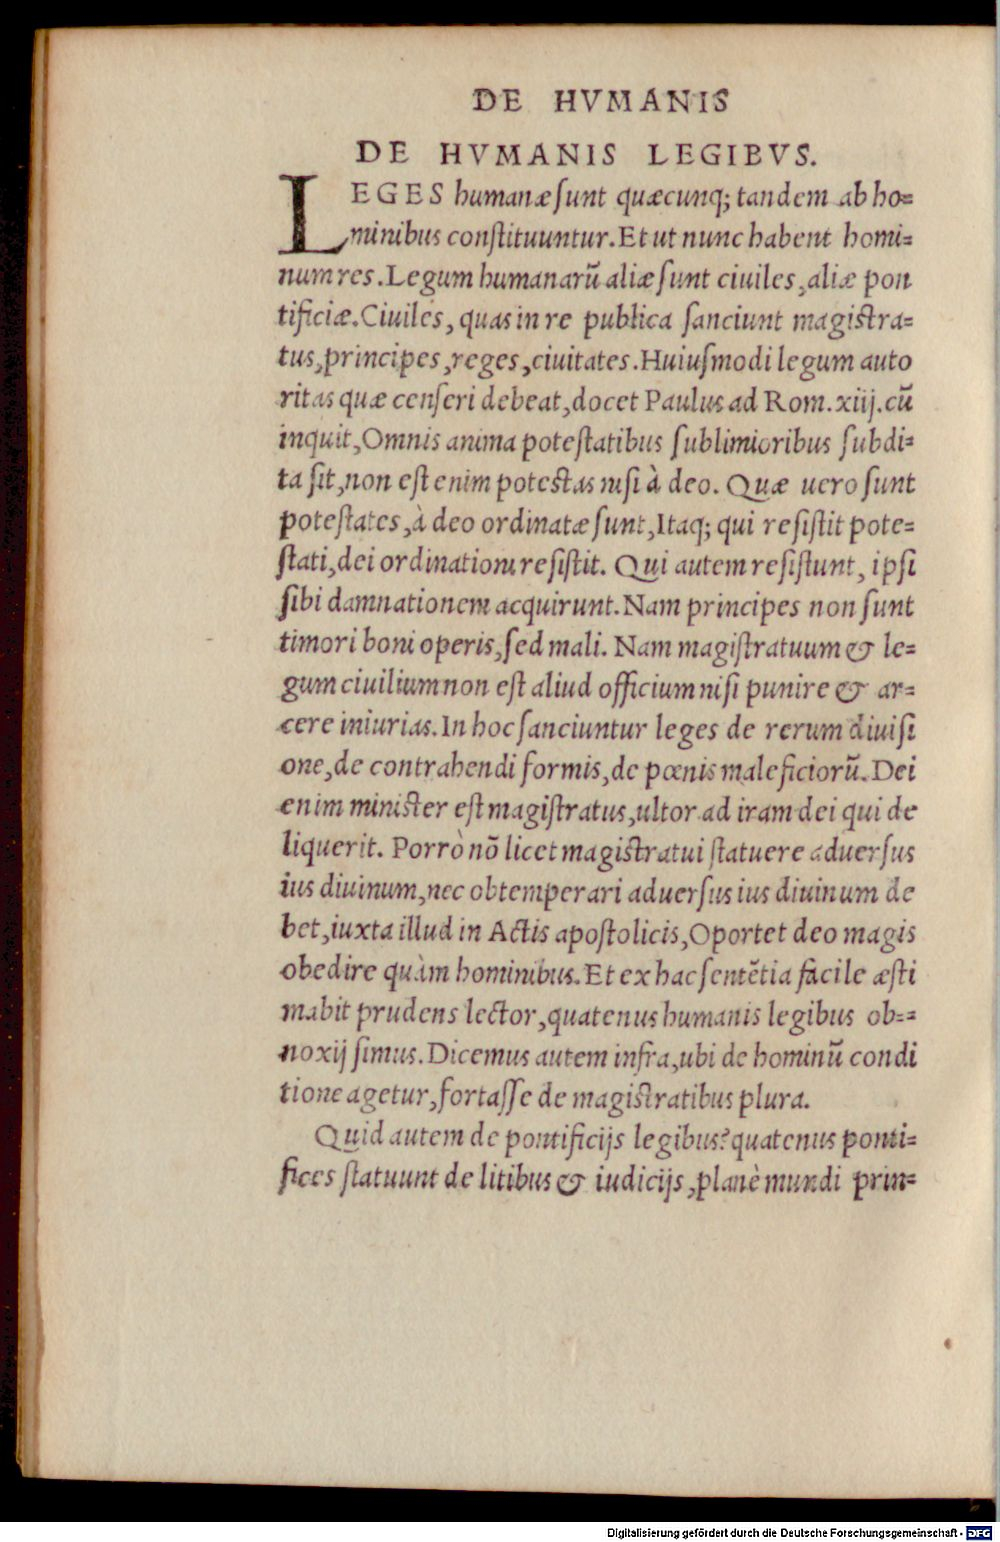 DE HVMANIS
DE HVMANIS LEGIBVS.
LEGES humanæ sunt quæcunq; tandem ab ho=
minibus constituuntur. Et ut nunc habent homi=
num res. Legum humanarū aliæ sunt ciuiles, aliæ pon
tificiæ. Ciuiles, quas in re publica sanciunt magistra=
tus, principes, reges, ciuitates. Huiusmodi legum auto
ritas quæ censeri debeat, docet Paulus ad Rom. xiij. cū
inquit, Omnis anima potestatibus sublimioribus subdi=
ta sit, non est enim potestas nisi à deo. Quæ uero sunt
potestates, à deo ordinatæ sunt, Itaq; qui resistit pote=
stati, dei ordinationi resistit. Qui autem resistunt, ipsi
sibi damnationem acquirunt. Nam principes non sunt
timori boni operis, sed mali. Nam magistratuum & le=
gum ciuilium non est aliud officium nisi punire & ar=
cere iniurias. In hoc sanciuntur leges de rerum diuisi
one, de contrahendi formis, de pœnis maleficiorū. Dei
enim minister est magistratus, ultor ad iram dei qui de
liquerit. Porrò nō licet magistratui statuere aduersus
ius diuinum, nec obtemperari aduersus ius diuinum de
bet, iuxta illud in Actis apostolicis, Oportet deo magis
obedire quàm hominibus. Et ex hac sentētia facile æsti
mabit prudens lector, quatenus humanis legibus ob==
noxij simus. Dicemus autem infra, ubi de hominū condi
tione agetur, fortasse de magistratibus plura.
Quid autem de pontificijs legibus? quatenus ponti=
fices statuunt de litibus & iudicijs, planè mundi prin=
Digitalisierung gefördert durch die Deutsche Forschungsgemeinschaft - DFG